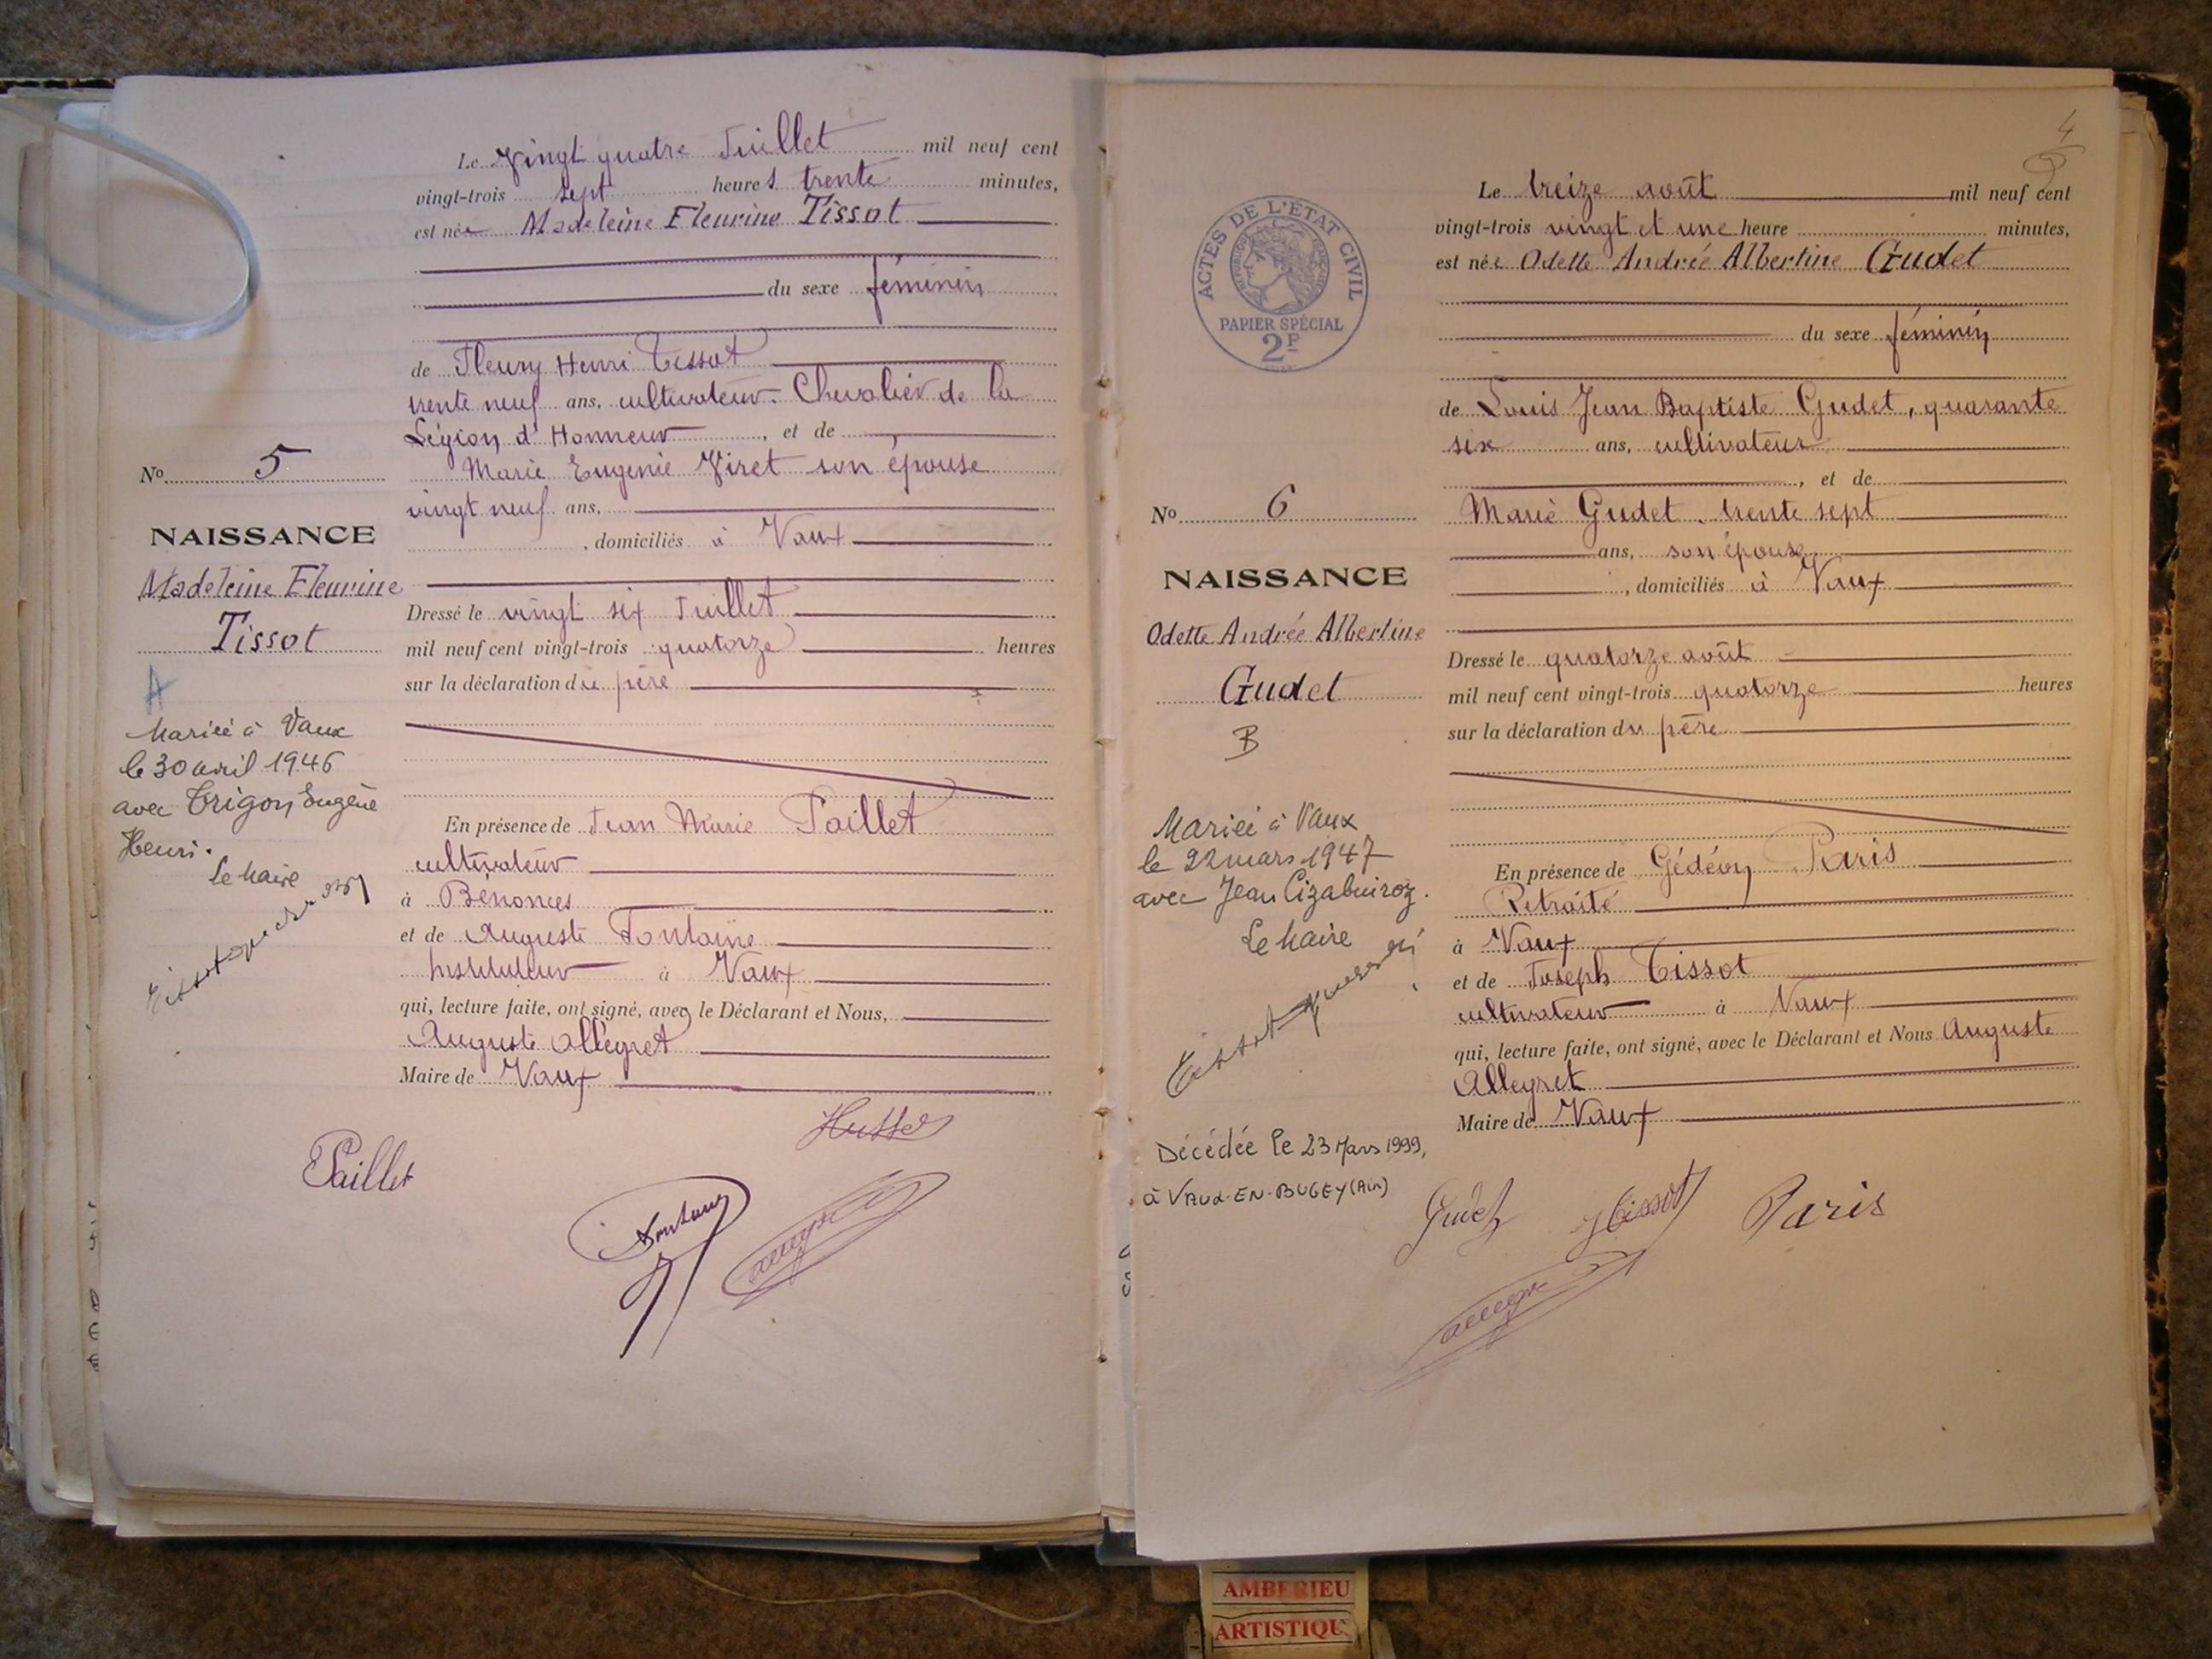 Le Vingt quatre Juillet mil neuf cent
vingt-trois sept heures trente minutes,
est née Madeleine Fleurine Tissot
du sexe féminin
de Fleury Henri Tissot
trente neuf ans, cultivateur. Chevalier de la
Légion d'Honneur, et de
Marie Eugenie Viret son épouse
vingt neuf ans,
, domiciliés à Vaux
No 5
NAISSANCE
Madeleine Fleurine
Tissot
A
Mariée à Vaux
le 30 avril 1946
avec Trigon Eugène
Henri.
Le Maire
Tissot
Dressé le vingt six Juillet
mil neuf cent vingt-trois quatorze heures
sur la déclaration du père
En présence de Jean Marie Paillet
cultivateur
à Bénonces
et de Auguste Fontaine
Instituteur à Vaux
qui, lecture faite, ont signé, avec le Déclarant et Nous,
Auguste Alleyret
Maire de Vaux
Paillet
4
ACTES DE L'ÉTAT CIVIL
RÉPUBLIQUE FRANÇAISE
PAPIER SPÉCIAL
2F
Le treize août mil neuf cent
vingt-trois vingt et une heure minutes,
est née Odette Andrée Albertine Gudet
du sexe féminin
de Louis Jean Baptiste Gudet, quarante
six ans, cultivateur
, et de
Marie Gudet, trente sept
ans, son épouse
, domiciliés à Vaux
No 6
NAISSANCE
Odette Andrée Albertine
Gudet
B
Mariée à Vaux
le 22 mars 1947
avec Jean Cizabuiroz.
Le Maire
Tissot
Décédée le 23 Mars 1999,
à VAUX-EN-BUGEY (Ain)
Dressé le quatorze août
mil neuf cent vingt-trois quatorze heures
sur la déclaration du père
En présence de Gédéon Paris
Retraité
à Vaux
et de Joseph Tissot
cultivateur à Vaux
qui, lecture faite, ont signé, avec le Déclarant et Nous Auguste
Alleyret
Maire de Vaux
Gudet JTissot Paris
AMBERIEU
ARTISTIQU